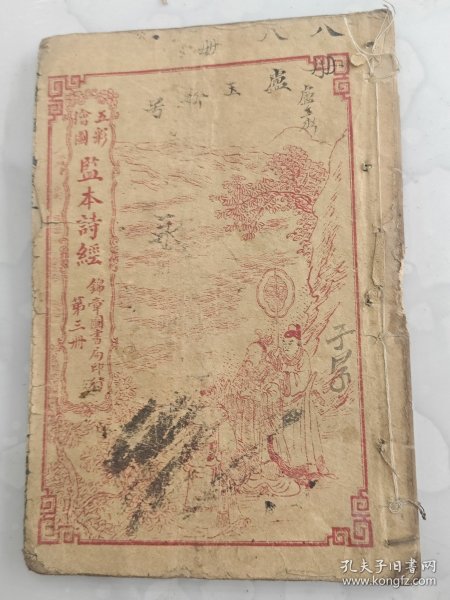 五彩
繪圖
監本詩經
錦章圖書局印行
第三册
八
八
册
册
盧
玉
号
子身
孔夫子旧书网
www.kongfz.com